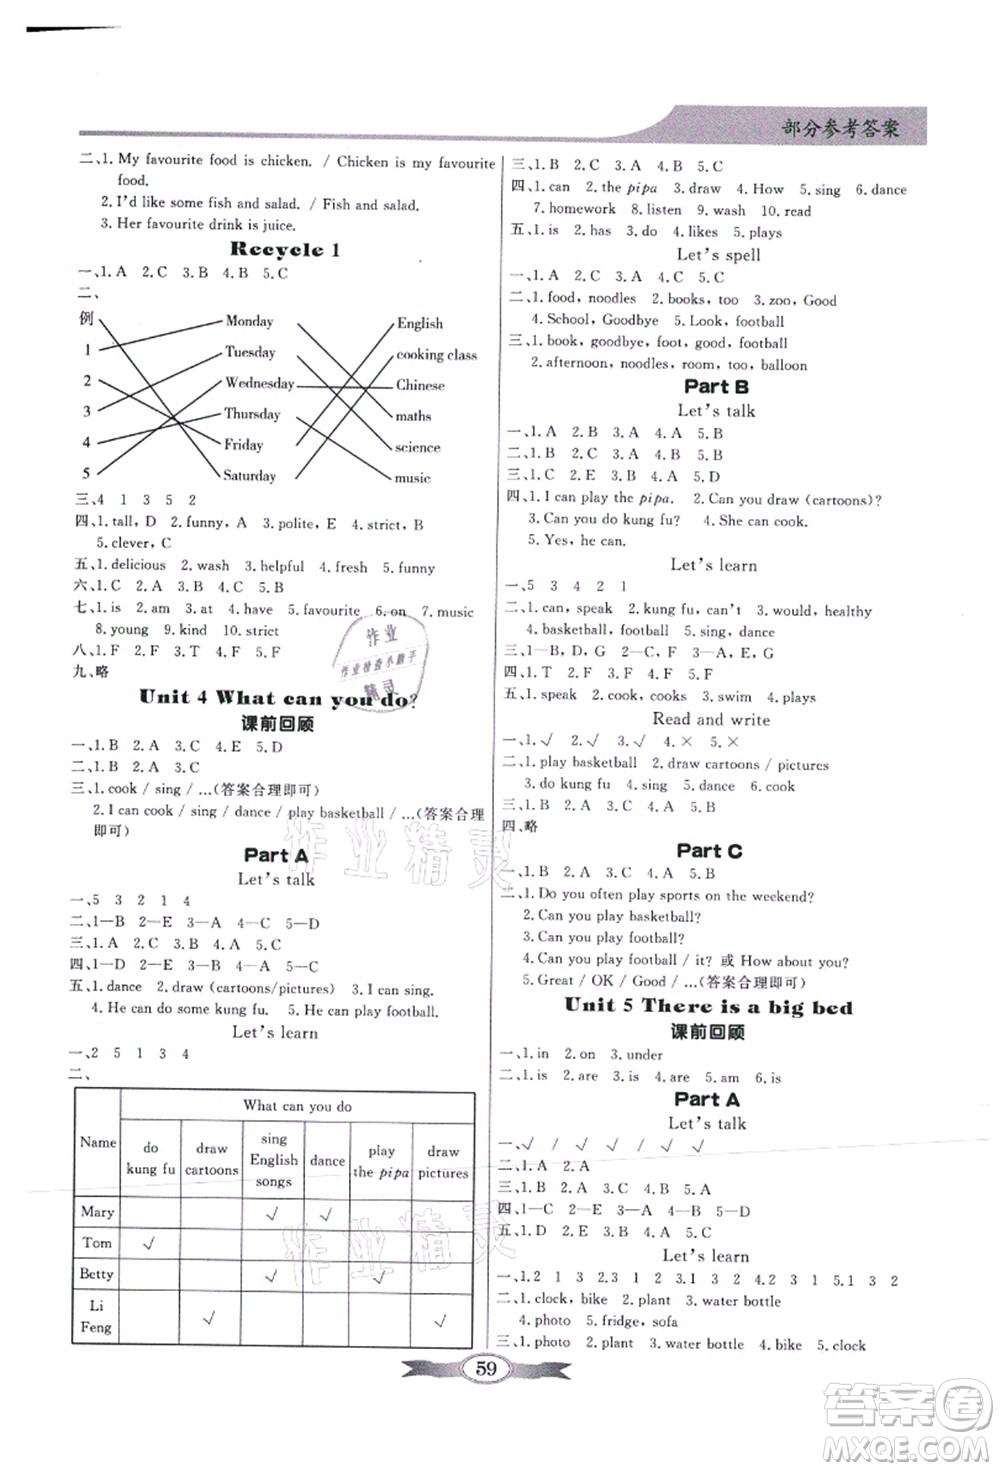 部分参考答案
二、1. My favourite food is chicken. / Chicken is my favourite
food.
2. I'd like some fish and salad. / Fish and salad.
3. Her favourite drink is juice.
Recycle 1
一、1. A 2. C 3. B 4. B 5. C
二、
例 Monday English
1 Tuesday cooking class
2 Wednesday Chinese
3 Thursday maths
4 Friday science
5 Saturday music
三、4 1 3 5 2
四、1. tall, D 2. funny, A 3. polite, E 4. strict, B
5. clever, C
五、1. delicious 2. wash 3. helpful 4. fresh 5. funny
六、1. C 2. A 3. A 4. C 5. B
七、1. is 2. am 3. at 4. have 5. favourite 6. on 7. music
8. young 9. kind 10. strict
八、1. F 2. F 3. T 4. F 5. F
九、略
Unit 4 What can you do?
课前回顾
一、1. B 2. A 3. C 4. E 5. D
二、1. A 2. C 3. A 4. B 5. B
三、1. cook / sing / …(答案合理即可)
2. I can cook / sing / dance / play basketball / …(答案合理
即可)
Part A
Let's talk
一、5 3 2 1 4
二、1—B 2—E 3—A 4—C 5—D
三、1. A 2. C 3. B 4. A 5. C
四、1—D 2—E 3—A 4—C 5—B
五、1. dance 2. draw (cartoons/pictures) 3. I can sing.
4. He can do some kung fu. 5. He can play football.
Let's learn
一、2 5 1 3 4
二、
Name What can you do
do kung fu draw cartoons sing English songs dance play the pipa draw pictures
Mary √ √
Tom √
Betty √ √
Li Feng √ √
三、1. B 2. C 3. A 4. B 5. C
四、1. can 2. the pipa 3. draw 4. How 5. sing 6. dance
7. homework 8. listen 9. wash 10. read
五、1. is 2. has 3. do 4. likes 5. plays
Let's spell
一、1. B 2. A 3. A 4. B 5. A
二、1. food, noodles 2. books, too 3. zoo, Good
4. School, Goodbye 5. Look, football
三、1. book, goodbye, foot, good, football
2. afternoon, noodles, room, too, balloon
Part B
Let's talk
一、1. A 2. B 3. A 4. A 5. B
二、1. B 2. A 3. B 4. A 5. A
三、1. C 2. E 3. B 4. A 5. D
四、1. I can play the pipa. 2. Can you draw (cartoons)?
3. Can you do kung fu? 4. She can cook.
5. Yes, he can.
Let's learn
一、5 3 4 2 1
二、1. can, speak 2. kung fu, can't 3. would, healthy
4. basketball, football 5. sing, dance
三、1—B, D 2—C, F 3—A, E
四、1. T 2. F 3. T 4. F 5. F
五、1. speak 2. cook, cooks 3. swim 4. plays
Read and write
一、1. √ 2. √ 3. √ 4. × 5. ×
二、1. play basketball 2. draw cartoons / pictures
3. do kung fu 4. sing 5. dance 6. cook
三、1. B 2. C 3. A 4. A 5. B
四、略
Part C
一、1. B 2. A 3. A 4. C 5. C
二、1. Do you often play sports on the weekend?
2. Can you play basketball?
3. Can you play football?
4. Can you play football / it? 或 How about you?
5. Great / OK / Good / …(答案合理即可)
Unit 5 There is a big bed
课前回顾
一、1. in 2. on 3. under
二、1. is 2. are 3. is 4. are 5. am 6. is
Part A
Let's talk
一、√ √ √ √ √ √
二、1. A 2. A
三、1. B 2. C 3. A 4. B 5. A
四、1—C 2—E 3—A 4—B 5—D
五、1. D 2. A 3. B 4. E 5. C
Let's learn
一、1. 2 1 3 2. 3 1 2 3. 1 2 3 4. 3 1 2 5. 1 3 2
二、1. clock, bike 2. plant 3. water bottle
4. photo 5. fridge, sofa
三、1. photo 2. plant 3. water bottle 4. bike 5. clock
59
作业
作业检查小助手
精灵
作业精灵
作业精灵
答案圈
MXQE.COM